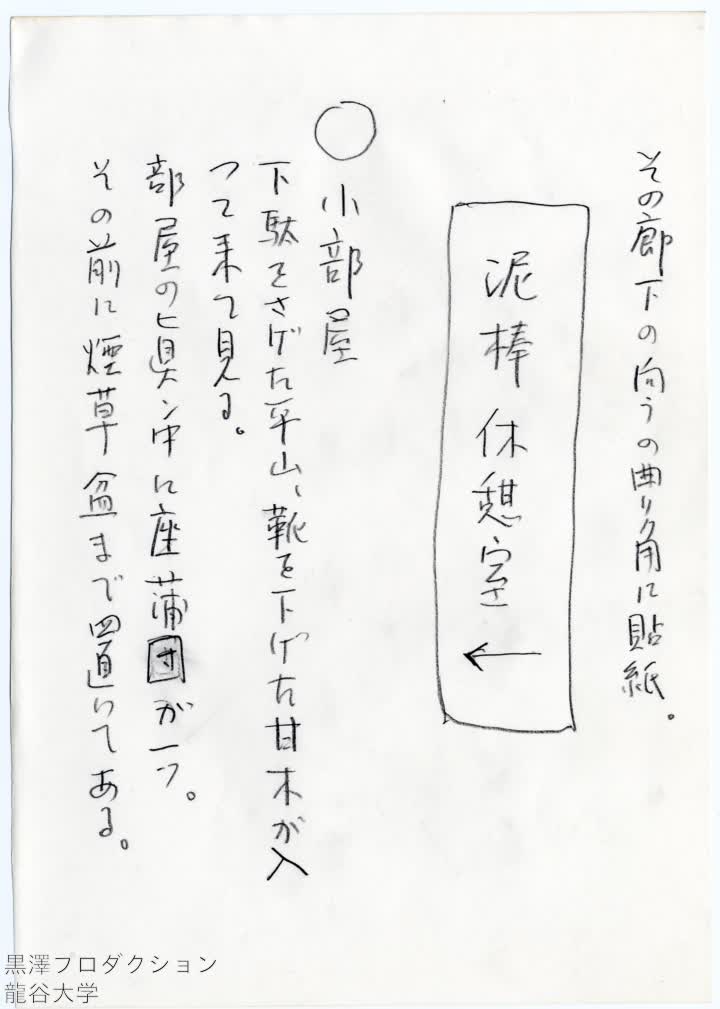 その廊下の向うの曲り角に貼紙。
泥棒休憩室
←
○
小部屋
下駄をさげた平山、靴を下げた甘木が入
つて来て見る。
部屋の真ン中に座蒲団が一つ。
その前に煙草盆まで置いてある。
黒澤プロダクション
龍谷大学